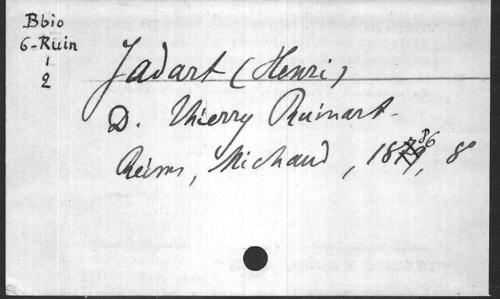 Bbio
6-Ruin
1
2
Jadart (Henri)
D. Thierry Ruinart.
Reims, Michaud, 1886, 8°